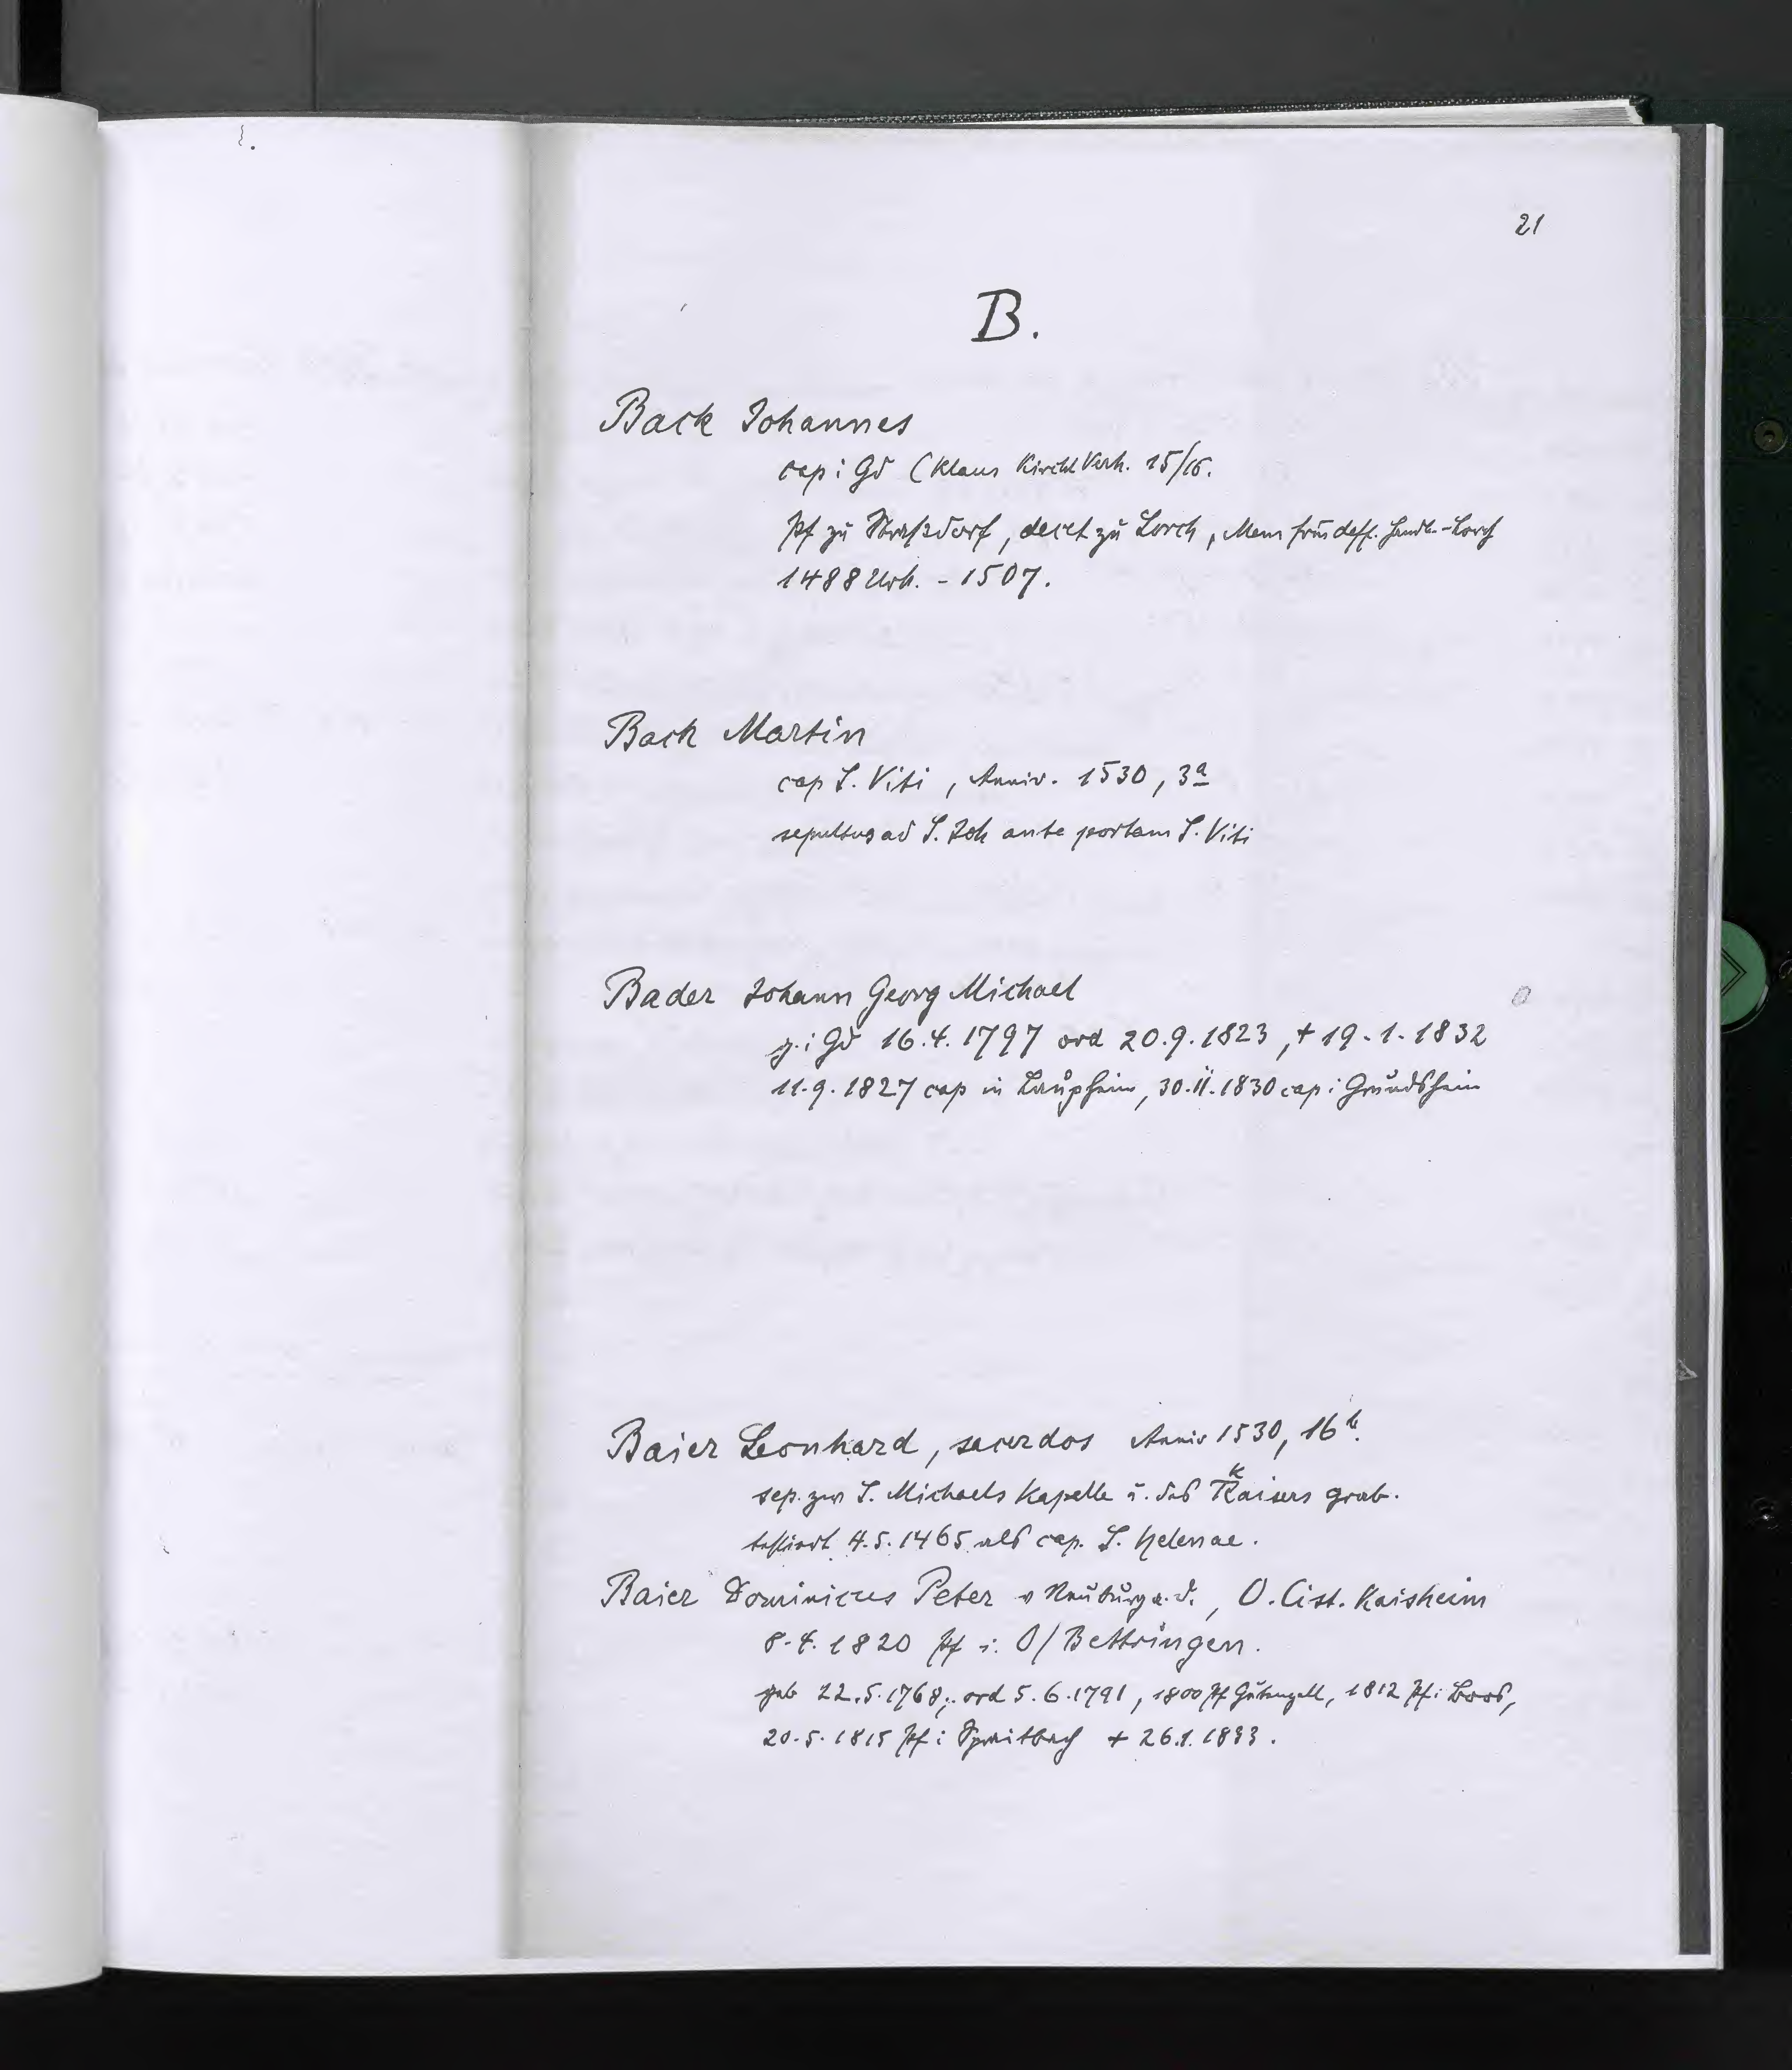 21
B.
Back Johannes
cap i Gd (Klaus Kirchl Verh. 15/16.
Pf zu Straßdorf, decet zu Lorch, Mem
1488 Urk. - 1507.
Back Martin
cap S. Viti, Anniv. 1530, 3a
sepultus ad S. Joh ante portam S. Viti
Bader Johann Georg Michael
g. i Gd 16.4.1797 ord 20.9.1823, + 19.1.1832
11.9.1827 cap in Laupheim, 30.11.1830 cap i Grundsheim
Baier Leonhard, sacerdos Anniv 1530, 16b.
sep. zw S. Michaels Kapelle u. des Kaisers grab.
testiert 4.5.1465 als cap. S. Helenae.
Baier Dominicus Peter v Neuburg a. d., O. Cist. Kaisheim
8.4.1820 Pf i. O/Bettringen.
geb 22.5.1768; ord 5.6.1791, 1800 Pf Gutenzell, 1812 Pf i Boos,
20.5.1815 Pf i Spraitbach + 26.1.1833.